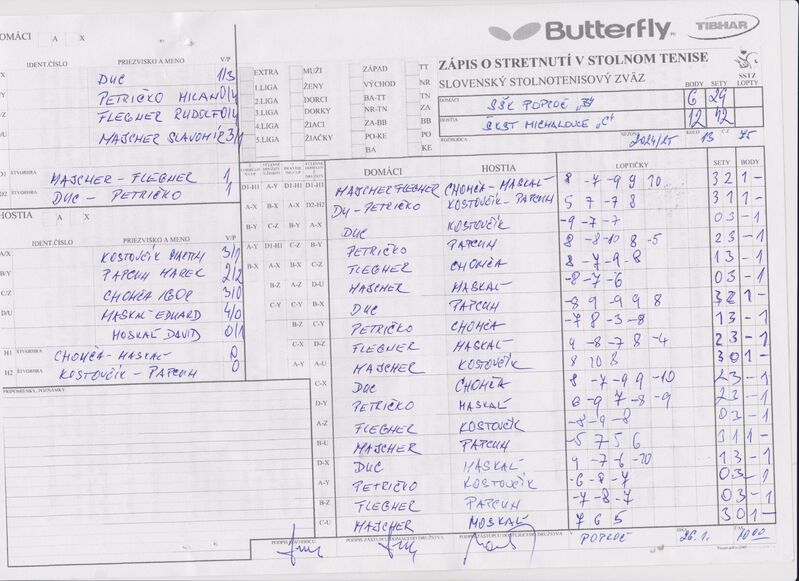 Butterfly
TIBHAR
DOMÁCI A X
IDENT.ČÍSLO PRIEZVISKO A MENO V/P
DUC 1/3
PETRIČKO MILAN 0/4
FLEGNER RUDOLF 0/4
MAJCHER SLAVOMÍR 3/1
D1 MAJCHER - FLEGNER 1
D2 ŠTVORHRA DUC - PETRIČKO 1
HOSTIA A X
IDENT.ČÍSLO PRIEZVISKO A MENO V/P
A/X KOSTOVČÍK MARTIN 3/1
B/Y PAPCUN MAREK 2/2
C/Z CHOMČA IGOR 3/0
D/U MASKAĽ EDUARD 4/0
MOSKAĽ DAVID 0/1
H1 ŠTVORHRA CHOMČA - MASKAĽ 0
H2 ŠTVORHRA KOSTOVČÍK - PAPCUN 0
PRIPOMIENKY, POZNÁMKY
EXTRA MUŽI ZÁPAD TT
1.LIGA ŽENY VÝCHOD NR
2.LIGA DORCI BA-TT TN
3.LIGA DORKY NR-TN ZA
4.LIGA ŽIACI ZA-BB BB
5.LIGA ŽIAČKY PO-KE PO
BA KE
ZÁPIS O STRETNUTÍ V STOLNOM TENISE
SLOVENSKÝ STOLNOTENISOVÝ ZVÄZ
SSTZ
BODY SETY LOPTY
DOMÁCI ŠŠK POPROČ "B" 6 29
HOSTIA ŠKST MICHALOVCE "C" 12 42
ROZHODCA SEZÓNA 2024/25 KOLO 13 Č.Z. 75
DOMÁCI HOSTIA LOPTIČKY SETY BODY
D1-H1 A-Y D1-H1 D1-H1 MAJCHER FLEGNER CHOMČA - MASKAĽ 8 -7 -9 9 10 3 2 1 -
A-X B-X A-X D2-H2 DU - PETRIČKO KOSTOVČÍK - PAPCUN 5 7 -7 8 3 1 1 -
B-Y C-Z B-Y A-X DUC KOSTOVČÍK -9 -7 -7 0 3 - 1
A-Y D1-H1 C-Z B-Y PETRIČKO PAPCUN 8 -8 -10 8 -5 2 3 - 1
B-X A-X B-X C-Z FLEGNER CHOMČA 8 -7 -9 -8 1 3 - 1
B-Z A-Z D-U MAJCHER MASKAĽ -8 -7 -6 0 3 - 1
C-Y C-Y B-X DUC PAPCUN -8 9 -9 9 8 3 2 1 -
B-Z C-Y PETRIČKO CHOMČA -7 8 -3 -8 1 3 - 1
C-X D-Z FLEGNER MASKAĽ 9 -8 -7 8 -4 2 3 - 1
A-Y A-U MAJCHER KOSTOVČÍK 8 10 8 3 0 1 -
C-X DUC CHOMČA 8 -7 -9 9 -10 2 3 - 1
D-Y PETRIČKO MASKAĽ 6 -9 7 -8 -9 2 3 - 1
A-Z FLEGNER KOSTOVČÍK -8 -9 -8 0 3 - 1
B-U MAJCHER PAPCUN -5 7 5 6 3 1 1 -
D-X DUC MASKAĽ 9 -7 -6 -10 1 3 - 1
A-Y PETRIČKO KOSTOVČÍK -6 -8 -7 0 3 - 1
B-Z FLEGNER PAPCUN -7 -8 -7 0 3 - 1
C-U MAJCHER MOSKAĽ 7 6 5 3 0 1 -
PODPIS ROZHODCU PODPIS ZÁSTUPCU DOMÁCEHO DRUŽSTVA PODPIS ZÁSTUPCU HOSŤUJÚCEHO DRUŽSTVA V POPROČ DŇA 26.1. ČAS 10 00